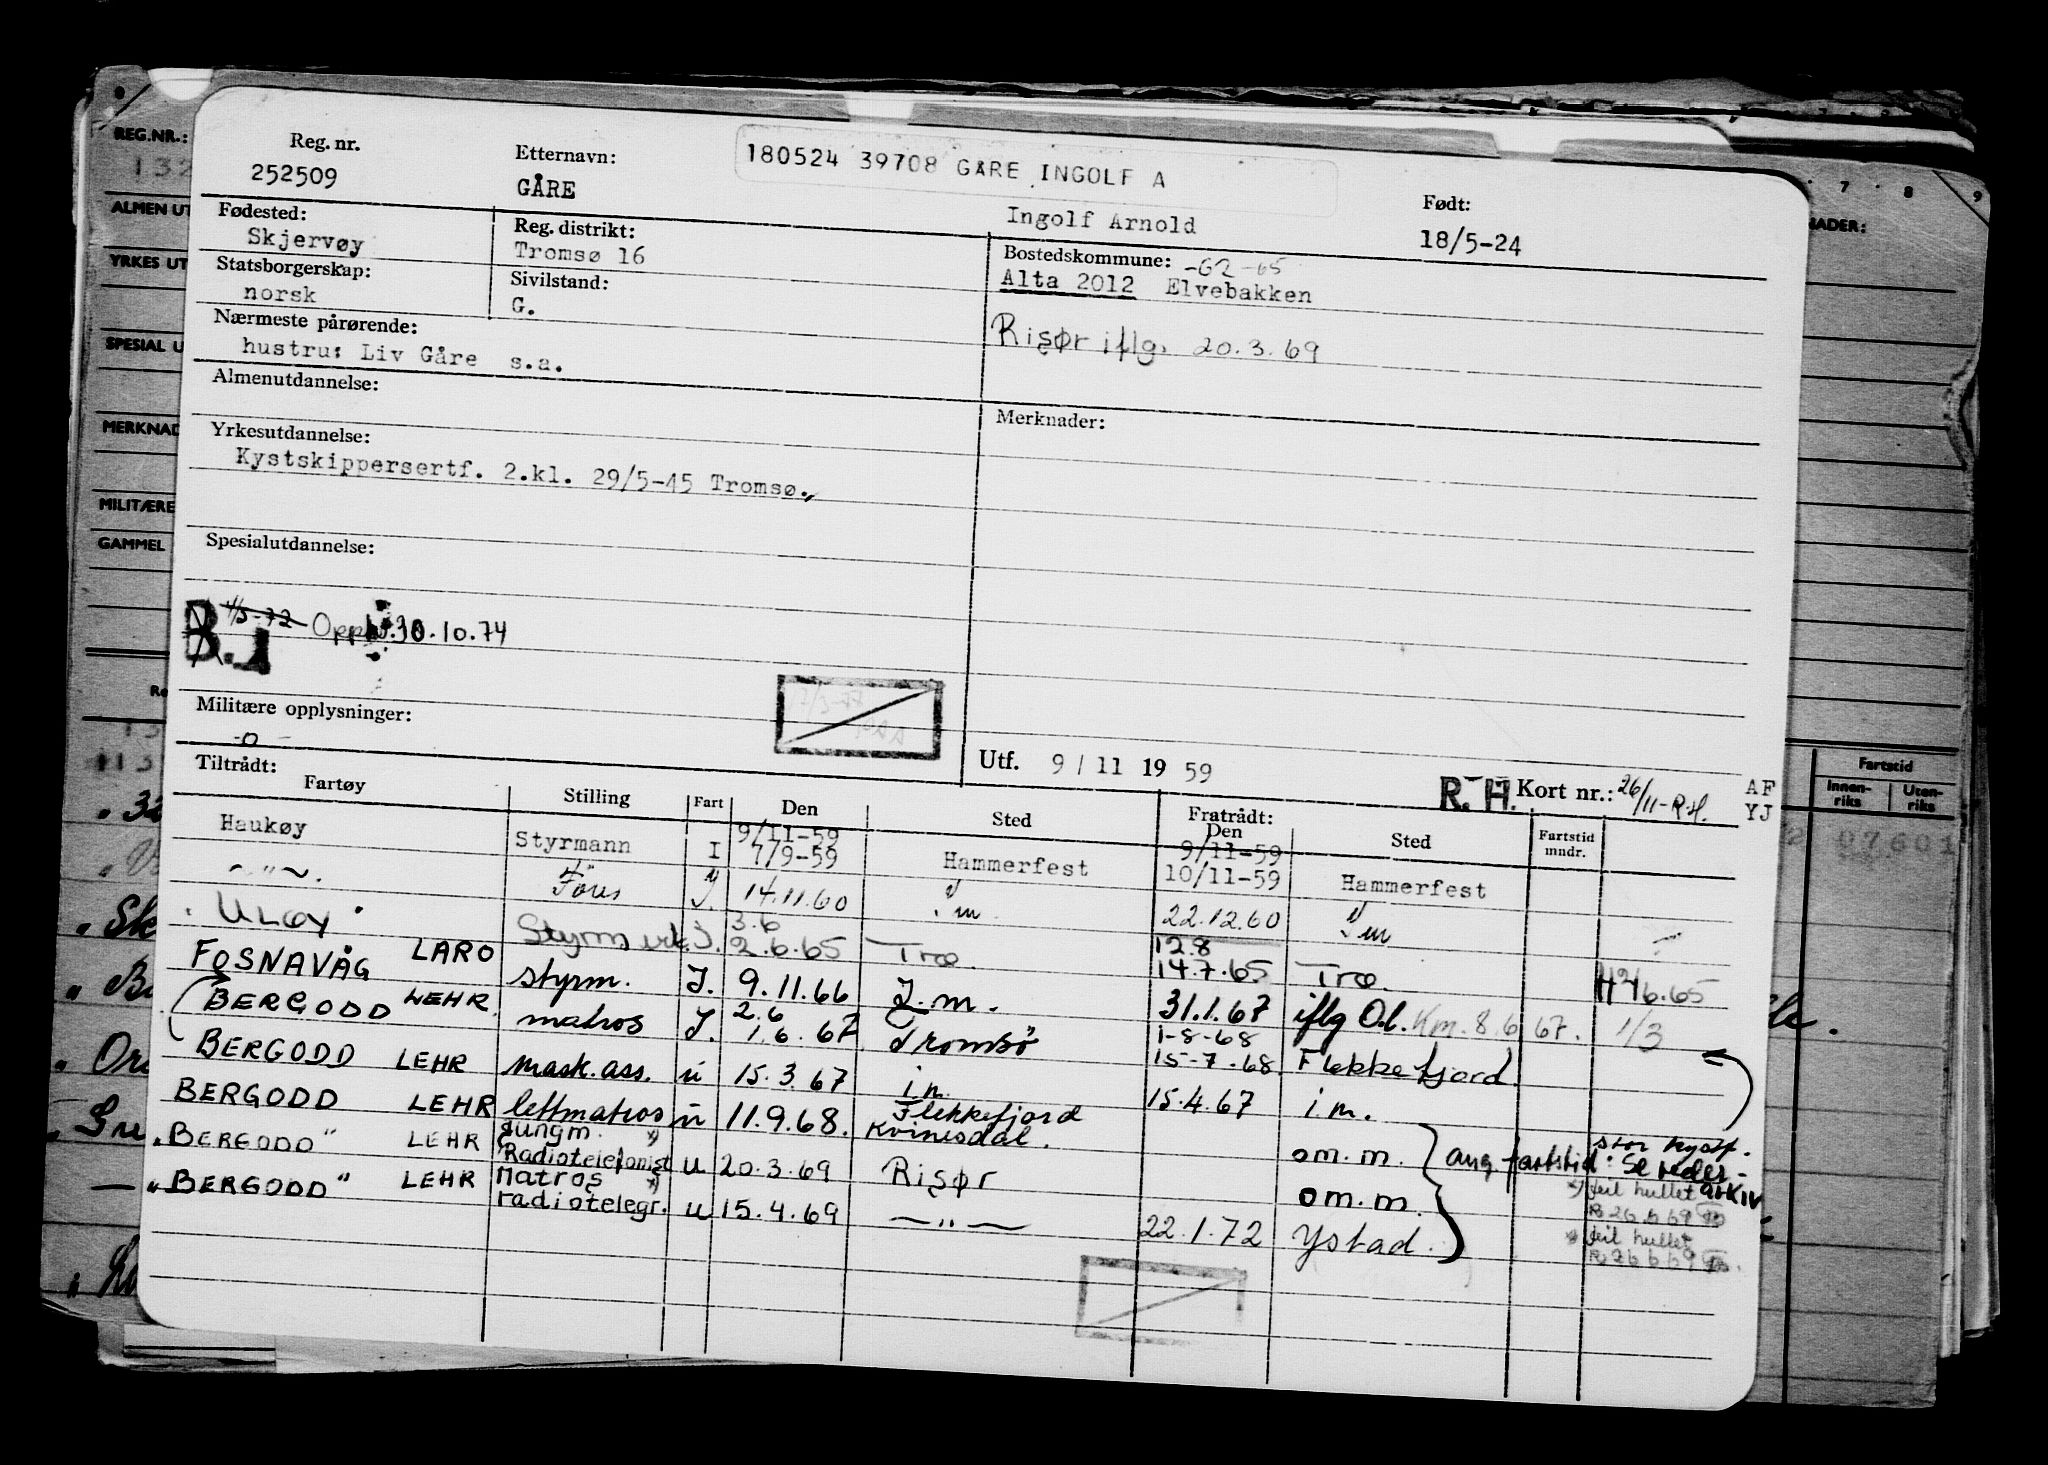 Reg. nr. Etternavn: 180524 39708 GÅRE INGOLF A Født:
252509 GÅRE Ingolf Arnold 18/5-24
Fødested: Reg. distrikt: Bostedskommune: -62-65
Skjervøy Tromsø 16 Alta 2012 Elvebakken
Statsborgerskap: Sivilstand:
norsk G.
Nærmeste pårørende: Risør iflg. 20.3.69
hustru: Liv Gåre s.a.
Almenutdannelse:
Merknader:
Yrkesutdannelse:
Kystskippersertf. 2.kl. 29/5-45 Tromsø.
Spesialutdannelse:
30.10.74
Militære opplysninger:
-o-
Utf. 9/11 1959 R. H. Kort nr.: 26/11-R.H. AF
YJ
Tiltrådt: Fratrådt:
Fartøy Stilling Fart Den Sted Den Sted Fartstid mndr.
Haukøy Styrmann I 9/11-59 7/9-59 Hammerfest 9/11-59 10/11-59 Hammerfest
— " —. J. 14.11.60 " 22.12.60 "
ULØY J. 3.6 2.6.65 Tro. 12.8 14.7.65 Tro.
FOSNAVÅG LARO styrm. J. 9.11.66 J.m. 31.1.67 iflg O.l. Km. 8.6 67. 1/3
BERGODD LEHR. matros J. 2.6 1.6.67 Tromsø 1-8-68 15-7-68 Flekkefjord
BERGODD LEHR mask.ass. u 15.3.67 i.m. 15.4.67 i.m.
BERGODD LEHR lettmatros u 11.9.68. Flekkefjord Kvinesdal. om.m. ang. fartstid: Se reder-
arkiv
"BERGODD" LEHR Jungm. Radiotelefonist u 20.3.69 Risør om.m. *) feil hullet
— "BERGODD" LEHR Matros radiotelegr. u 15.4.69 — " — 22.1.72 Ystad. * feil hullet
REG.NR.:
132
ALMEN UT
YRKES UT
SPESIAL U
MERKNAD
MILITÆRE
GAMMEL
7 8 9
NADER:
Fartstid
Innen-
riks Uten-
riks
07601